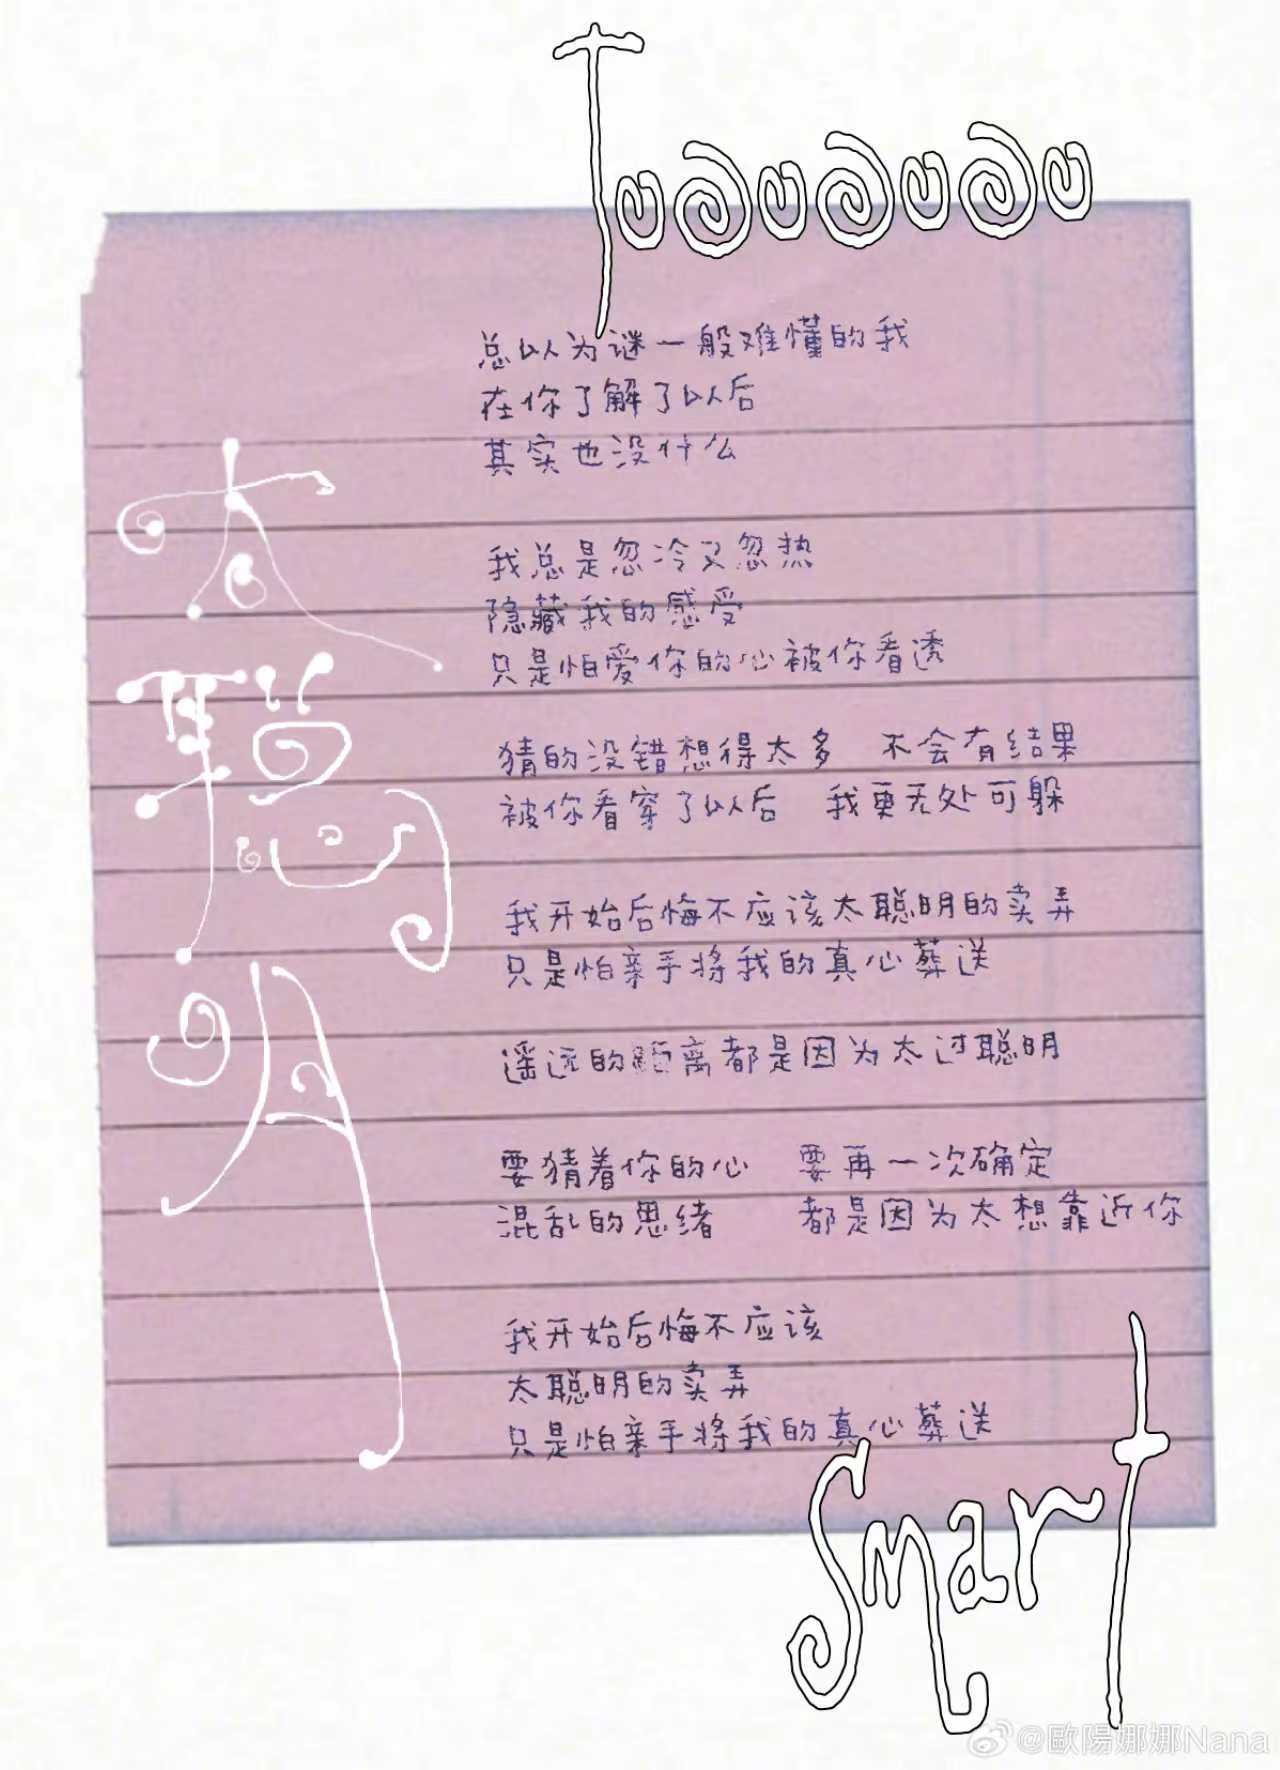 Tooooooo
太聪明
总以为谜一般难懂的我
在你了解了以后
其实也没什么
我总是忽冷又忽热
隐藏我的感受
只是怕爱你的心被你看透
猜的没错想得太多 不会有结果
被你看穿了以后 我更无处可躲
我开始后悔不应该太聪明的卖弄
只是怕亲手将我的真心葬送
遥远的距离都是因为太过聪明
要猜着你的心 要再一次确定
混乱的思绪 都是因为太想靠近你
我开始后悔不应该
太聪明的卖弄
只是怕亲手将我的真心葬送
Smart
@歐陽娜娜Nana